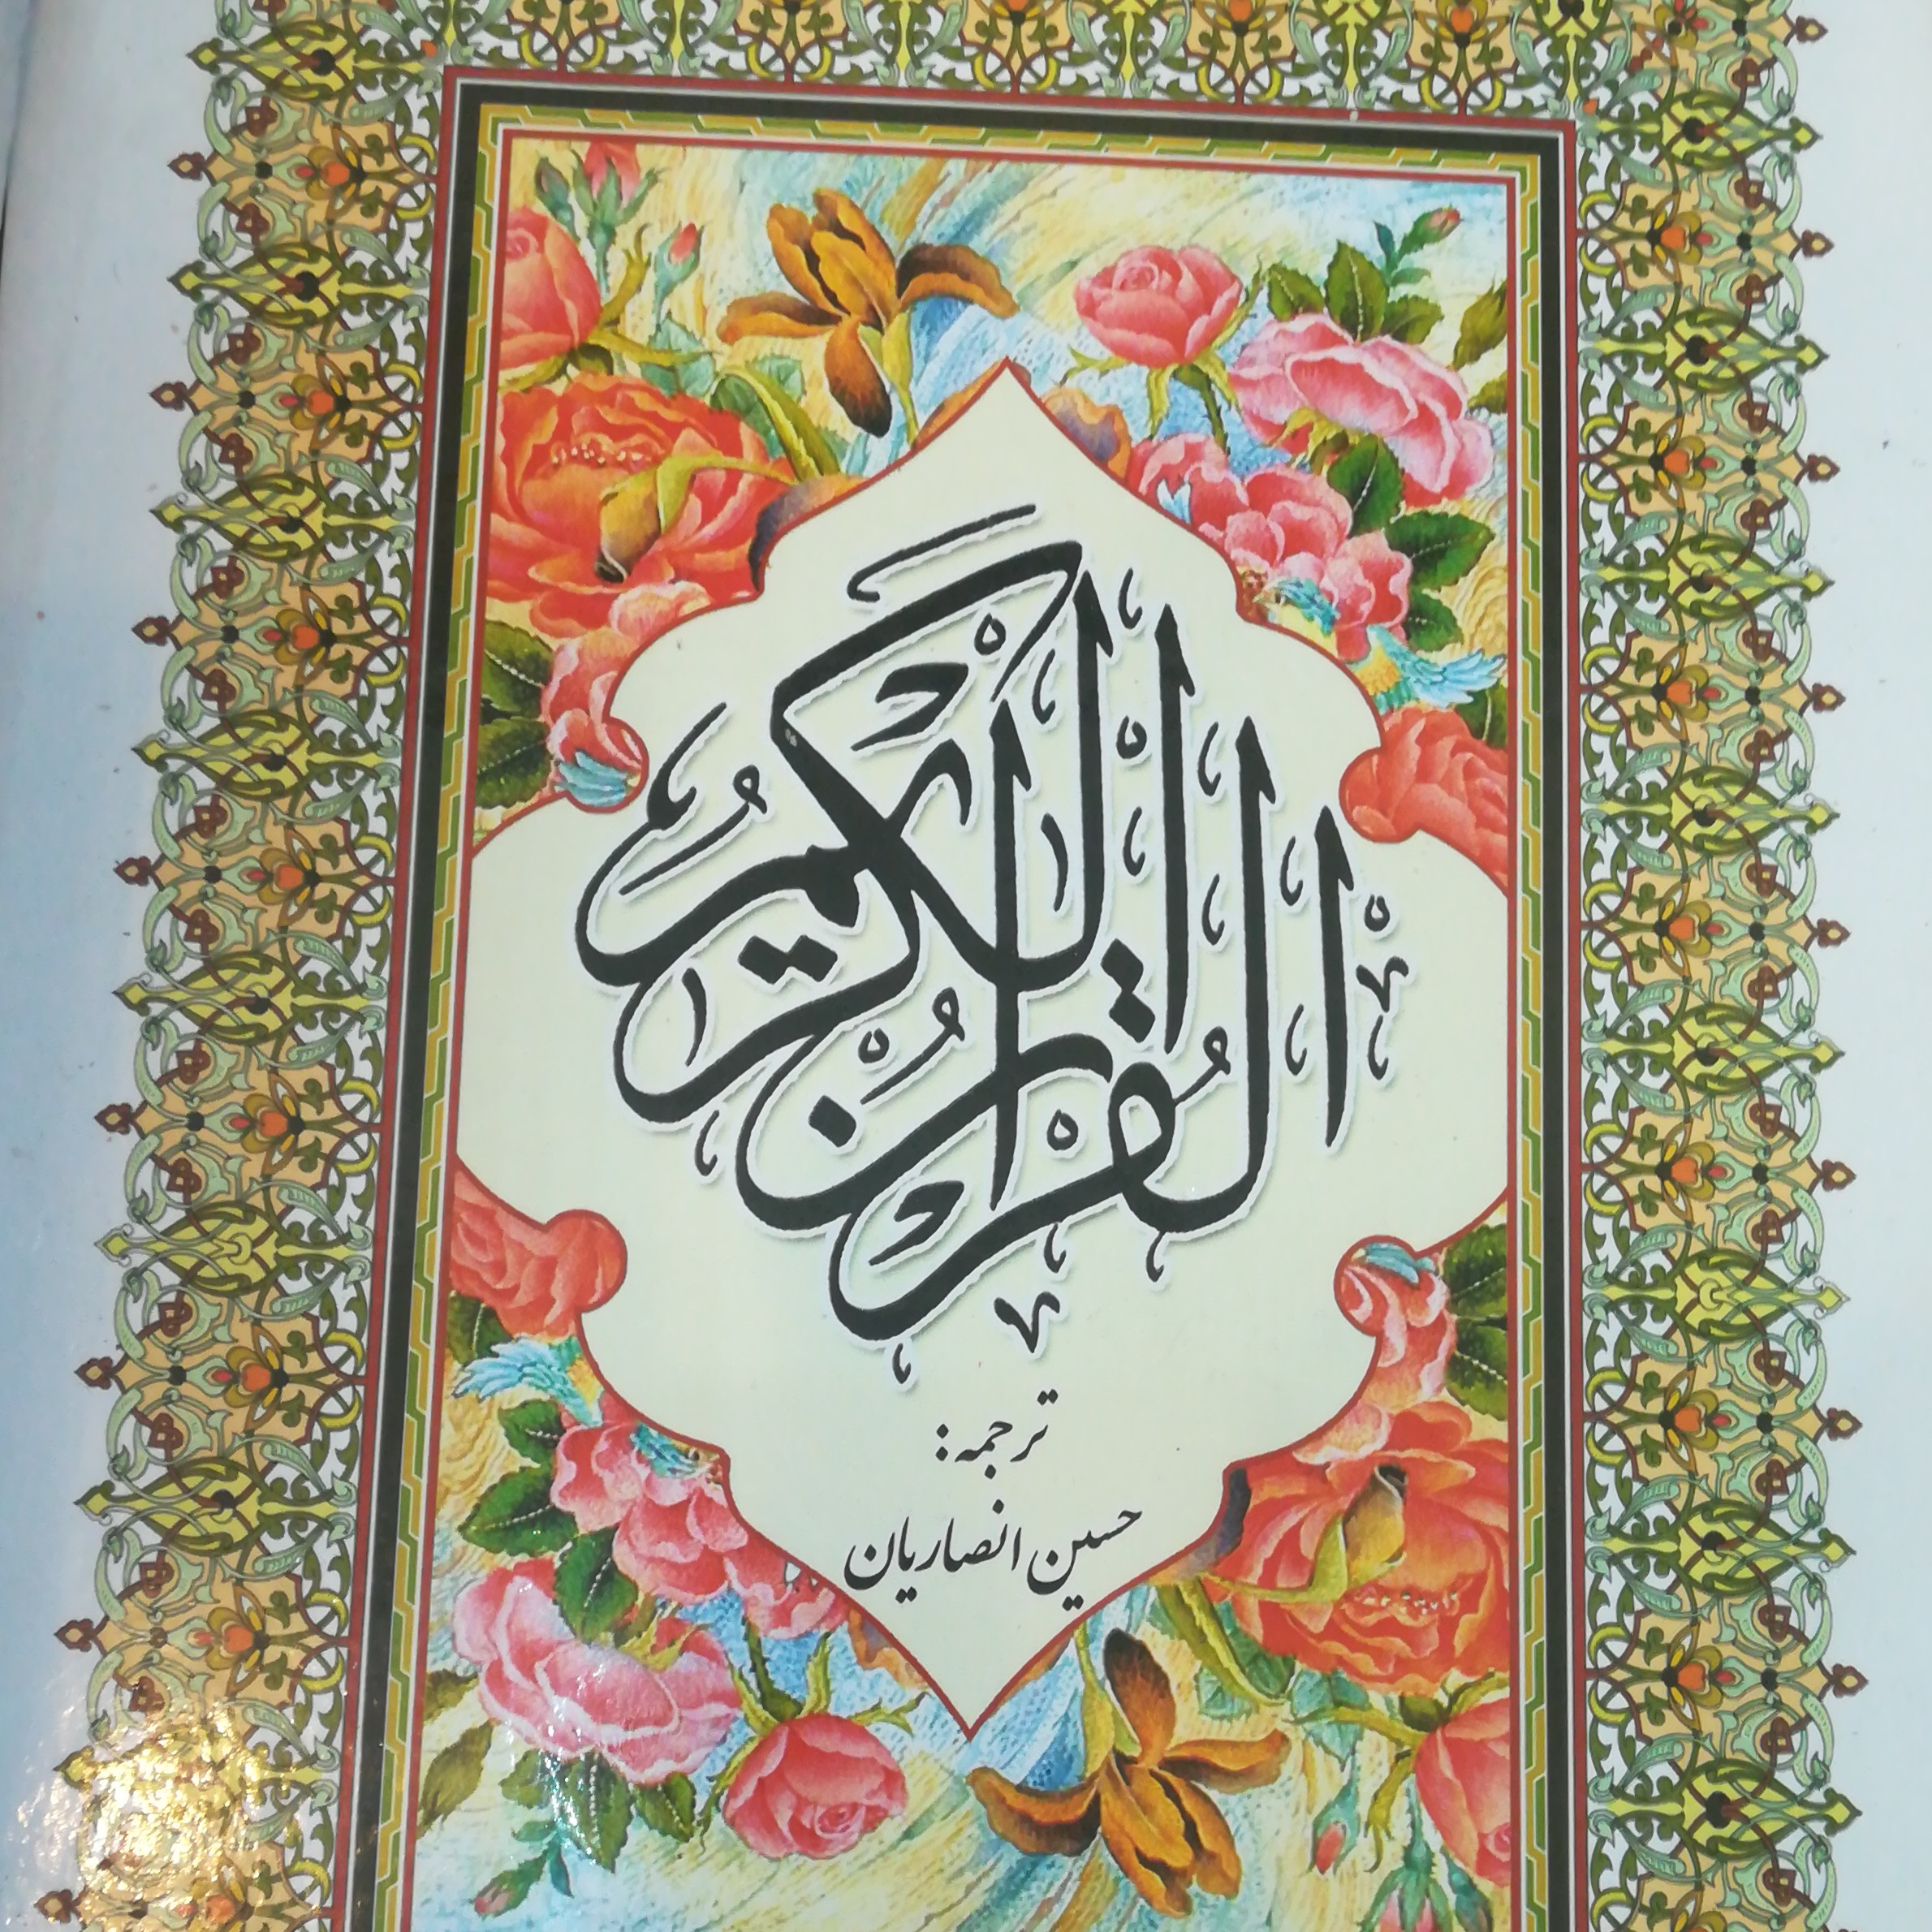 القرآن الكريم
ترجمه:
حسین انصاریان